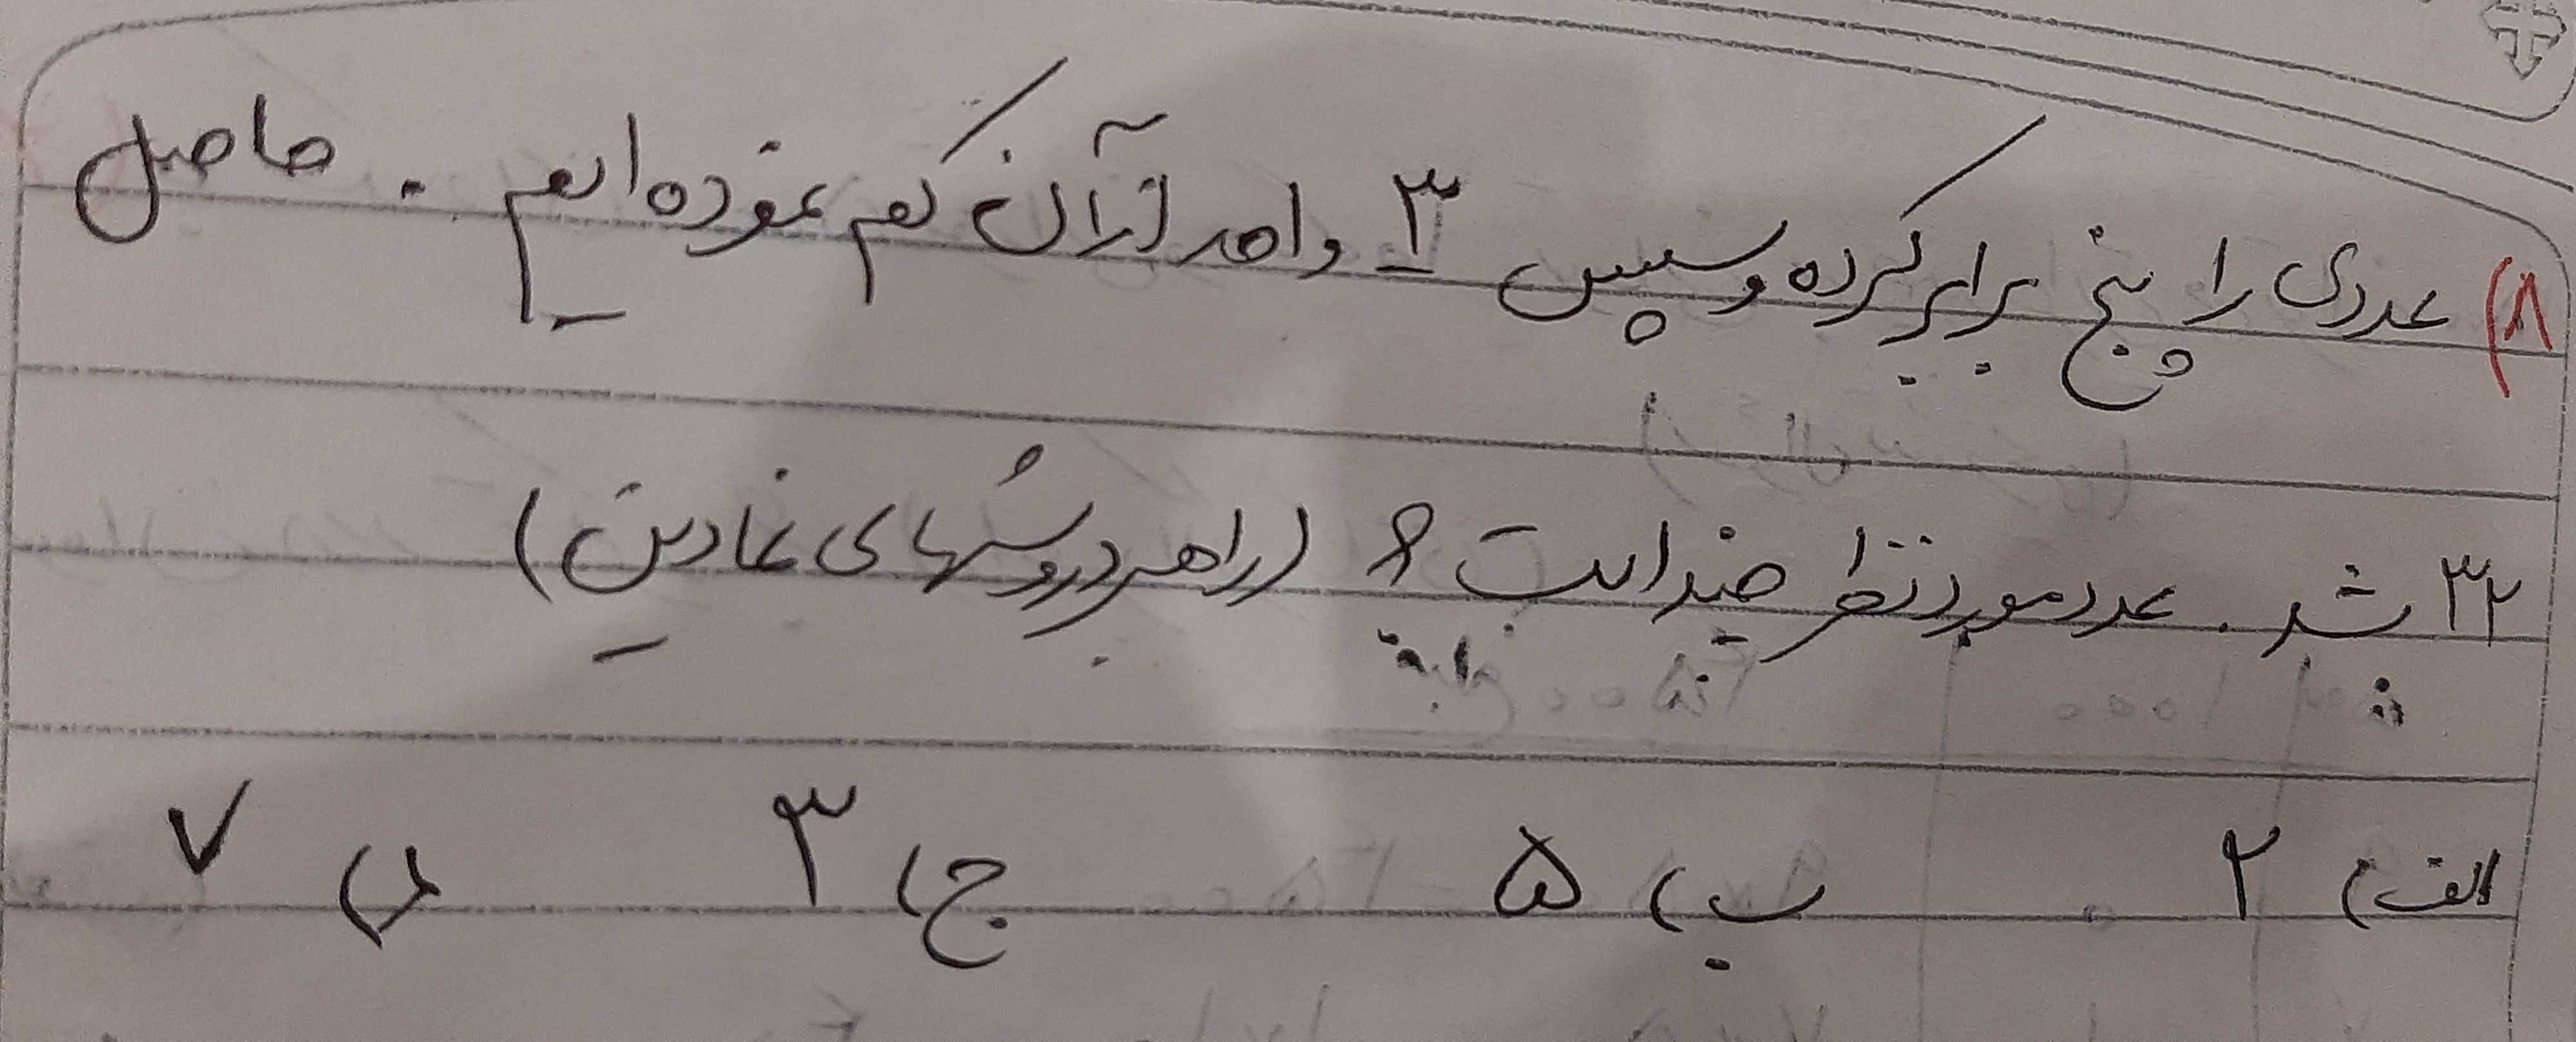 ۸) عددی را پنج برابر کرده و سپس ۳ واحد از آن کم نموده ایم. حاصل
۳۲ شد. عدد مورد نظر چند است؟ (راهبرد روشهای نمادین)
الف) ۲ ب) ۵ ج) ۳ د) ۷